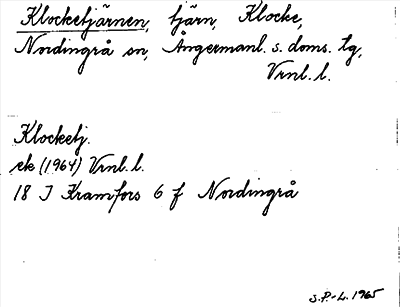 Klocketjärnen, tjärn, Klocke,
Nordingrå sn, Ångermanl. s. doms. tg,
Vrnl. l.
Klocketj.
ek (1964) Vrnl. l.
18 J Kramfors 6 f Nordingrå
S.P-L. 1965